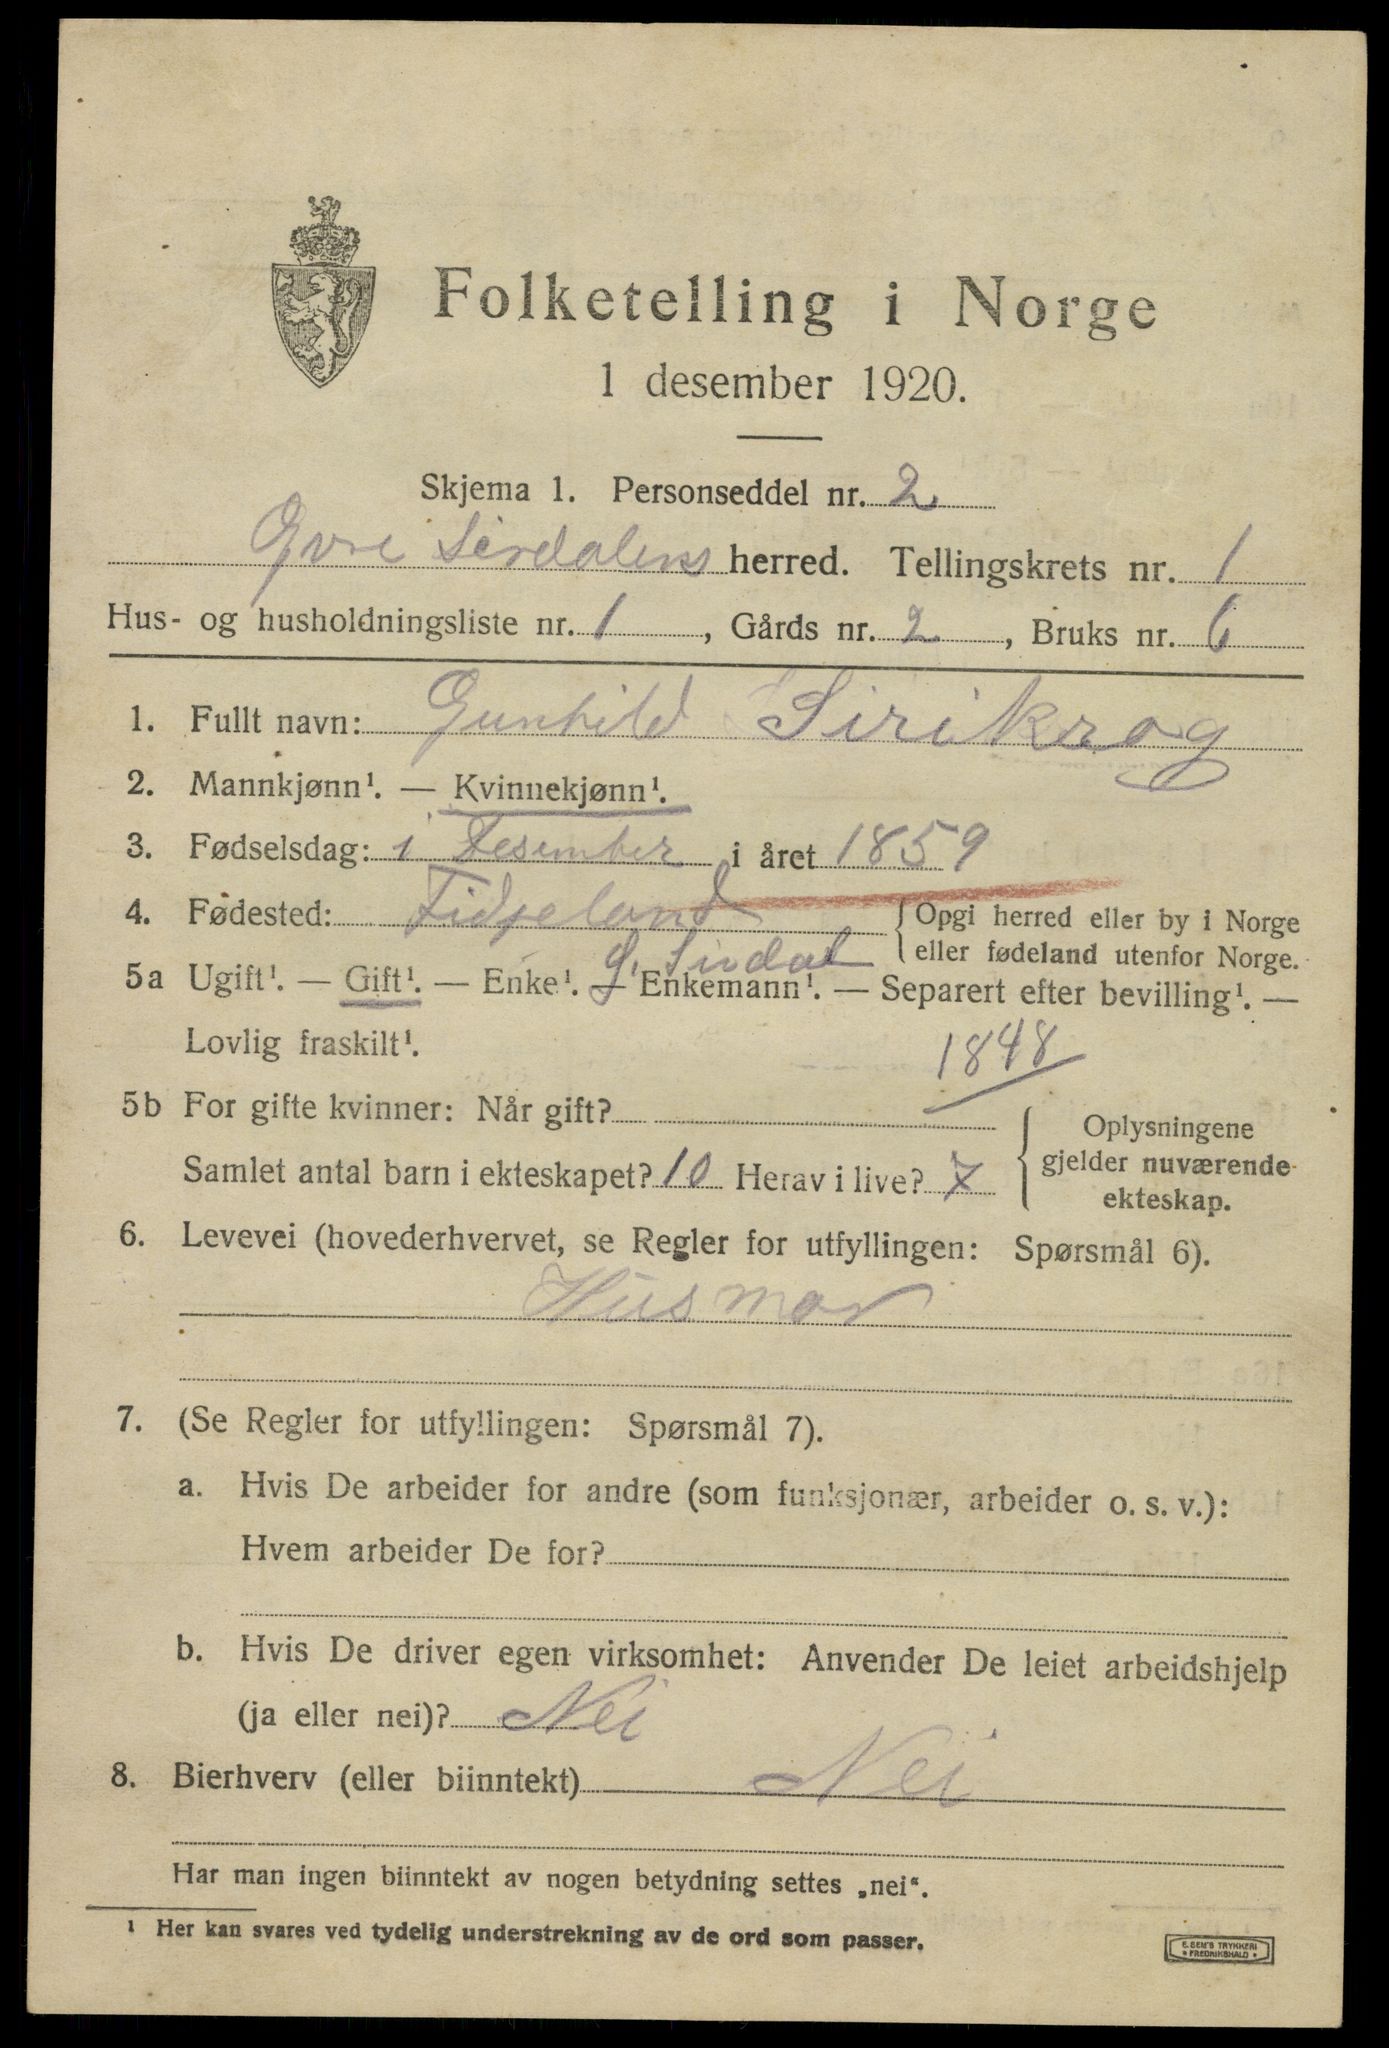 Folketelling i Norge
1 desember 1920.
Skjema 1. Personseddel nr. 2
Øvre Sirdalens herred. Tellingskrets nr. 1
Hus- og husholdningsliste nr. 1, Gårds nr. 2, Bruks nr. 6
1. Fullt navn: Gunhild Sirikrog
2. Mannkjønn¹. — Kvinnekjønn¹.
3. Fødselsdag: i Desember i året 1859
4. Fødested: Fidjeland { Opgi herred eller by i Norge
eller fødeland utenfor Norge.
Ø. Sirdal
5a Ugift¹. — Gift¹. — Enke¹. — Enkemann¹. — Separert efter bevilling¹. —
Lovlig fraskilt¹.
1848
5b For gifte kvinner: Når gift?
Samlet antal barn i ekteskapet? 10 Herav i live? 7
{ Oplysningene
gjelder nuværende
ekteskap.
6. Levevei (hovederhvervet, se Regler for utfyllingen: Spørsmål 6).
Husmor
7. (Se Regler for utfyllingen: Spørsmål 7).
a. Hvis De arbeider for andre (som funksjonær, arbeider o. s. v.):
Hvem arbeider De for?
b. Hvis De driver egen virksomhet: Anvender De leiet arbeidshjelp
(ja eller nei)? Nei
8. Bierhverv (eller biinntekt) Nei
Har man ingen biinntekt av nogen betydning settes „nei“.
¹ Her kan svares ved tydelig understrekning av de ord som passer.
E. SEM'S TRYKKERI
• FREDRIKSHALD •